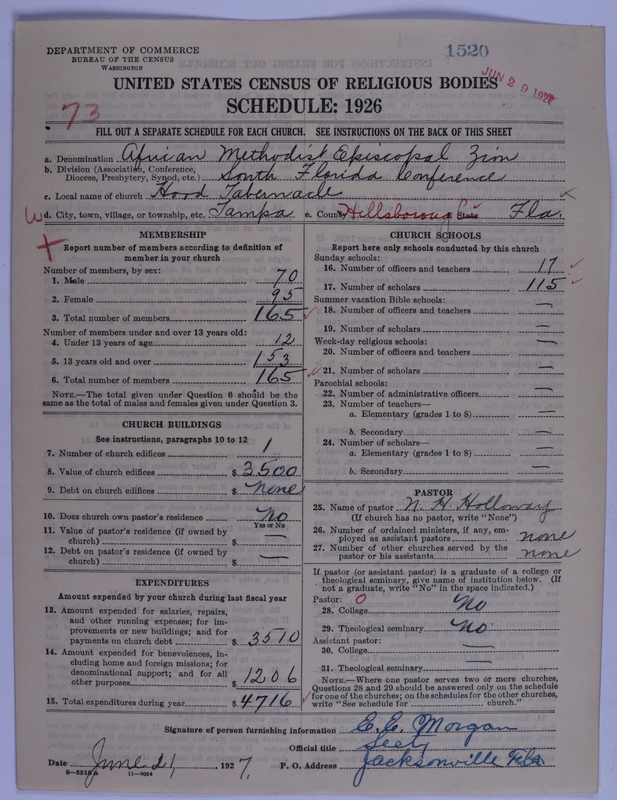 DEPARTMENT OF COMMERCE
BUREAU OF THE CENSUS
WASHINGTON
1520
JUN 29 1927
UNITED STATES CENSUS OF RELIGIOUS BODIES
SCHEDULE: 1926
73
FILL OUT A SEPARATE SCHEDULE FOR EACH CHURCH. SEE INSTRUCTIONS ON THE BACK OF THIS SHEET
a. Denomination African Methodist Episcopal Zion
b. Division (Association, Conference, Diocese, Presbytery, Synod, etc.) South Florida Conference
c. Local name of church Hood Tabernacle
d. City, town, village, or township, etc. Tampa e. County Hillsborough State Fla.
MEMBERSHIP
Report number of members according to definition of
member in your church
Number of members, by sex:
1. Male 70
2. Female 95
3. Total number of members 165
Number of members under and over 13 years old:
4. Under 13 years of age 12
5. 13 years old and over 153
6. Total number of members 165
NOTE.—The total given under Question 6 should be the
same as the total of males and females given under Question 3.
CHURCH BUILDINGS
See instructions, paragraphs 10 to 12
7. Number of church edifices 1
8. Value of church edifices $ 3500
9. Debt on church edifices $ None
10. Does church own pastor's residence No
Yes or No
11. Value of pastor's residence (if owned by
church) $ —
12. Debt on pastor's residence (if owned by
church) $ —
EXPENDITURES
Amount expended by your church during last fiscal year
13. Amount expended for salaries, repairs,
and other running expenses; for im-
provements or new buildings; and for
payments on church debt $ 3510
14. Amount expended for benevolences, in-
cluding home and foreign missions; for
denominational support; and for all
other purposes $ 1206
15. Total expenditures during year $ 4716
CHURCH SCHOOLS
Report here only schools conducted by this church
Sunday schools:
16. Number of officers and teachers 17
17. Number of scholars 115
Summer vacation Bible schools:
18. Number of officers and teachers —
19. Number of scholars —
Week-day religious schools:
20. Number of officers and teachers —
21. Number of scholars —
Parochial schools:
22. Number of administrative officers —
23. Number of teachers—
a. Elementary (grades 1 to 8) —
b. Secondary —
24. Number of scholars—
a. Elementary (grades 1 to 8) —
b. Secondary —
PASTOR
25. Name of pastor N. H. Holloway
(If church has no pastor, write "None")
26. Number of ordained ministers, if any, em-
ployed as assistant pastors none
27. Number of other churches served by the
pastor or his assistants none
If pastor (or assistant pastor) is a graduate of a college or
theological seminary, give name of institution below. (If
not a graduate, write "No" in the space indicated.)
Pastor: 0
28. College No
29. Theological seminary No
Assistant pastor:
30. College —
31. Theological seminary —
NOTE.—Where one pastor serves two or more churches,
Questions 28 and 29 should be answered only on the schedule
for one of the churches; on the schedules for the other churches,
write "See schedule for church."
Signature of person furnishing information E. C. Morgan
Official title Secty
Date June 21, 1927. P. O. Address Jacksonville Fla
11—9024